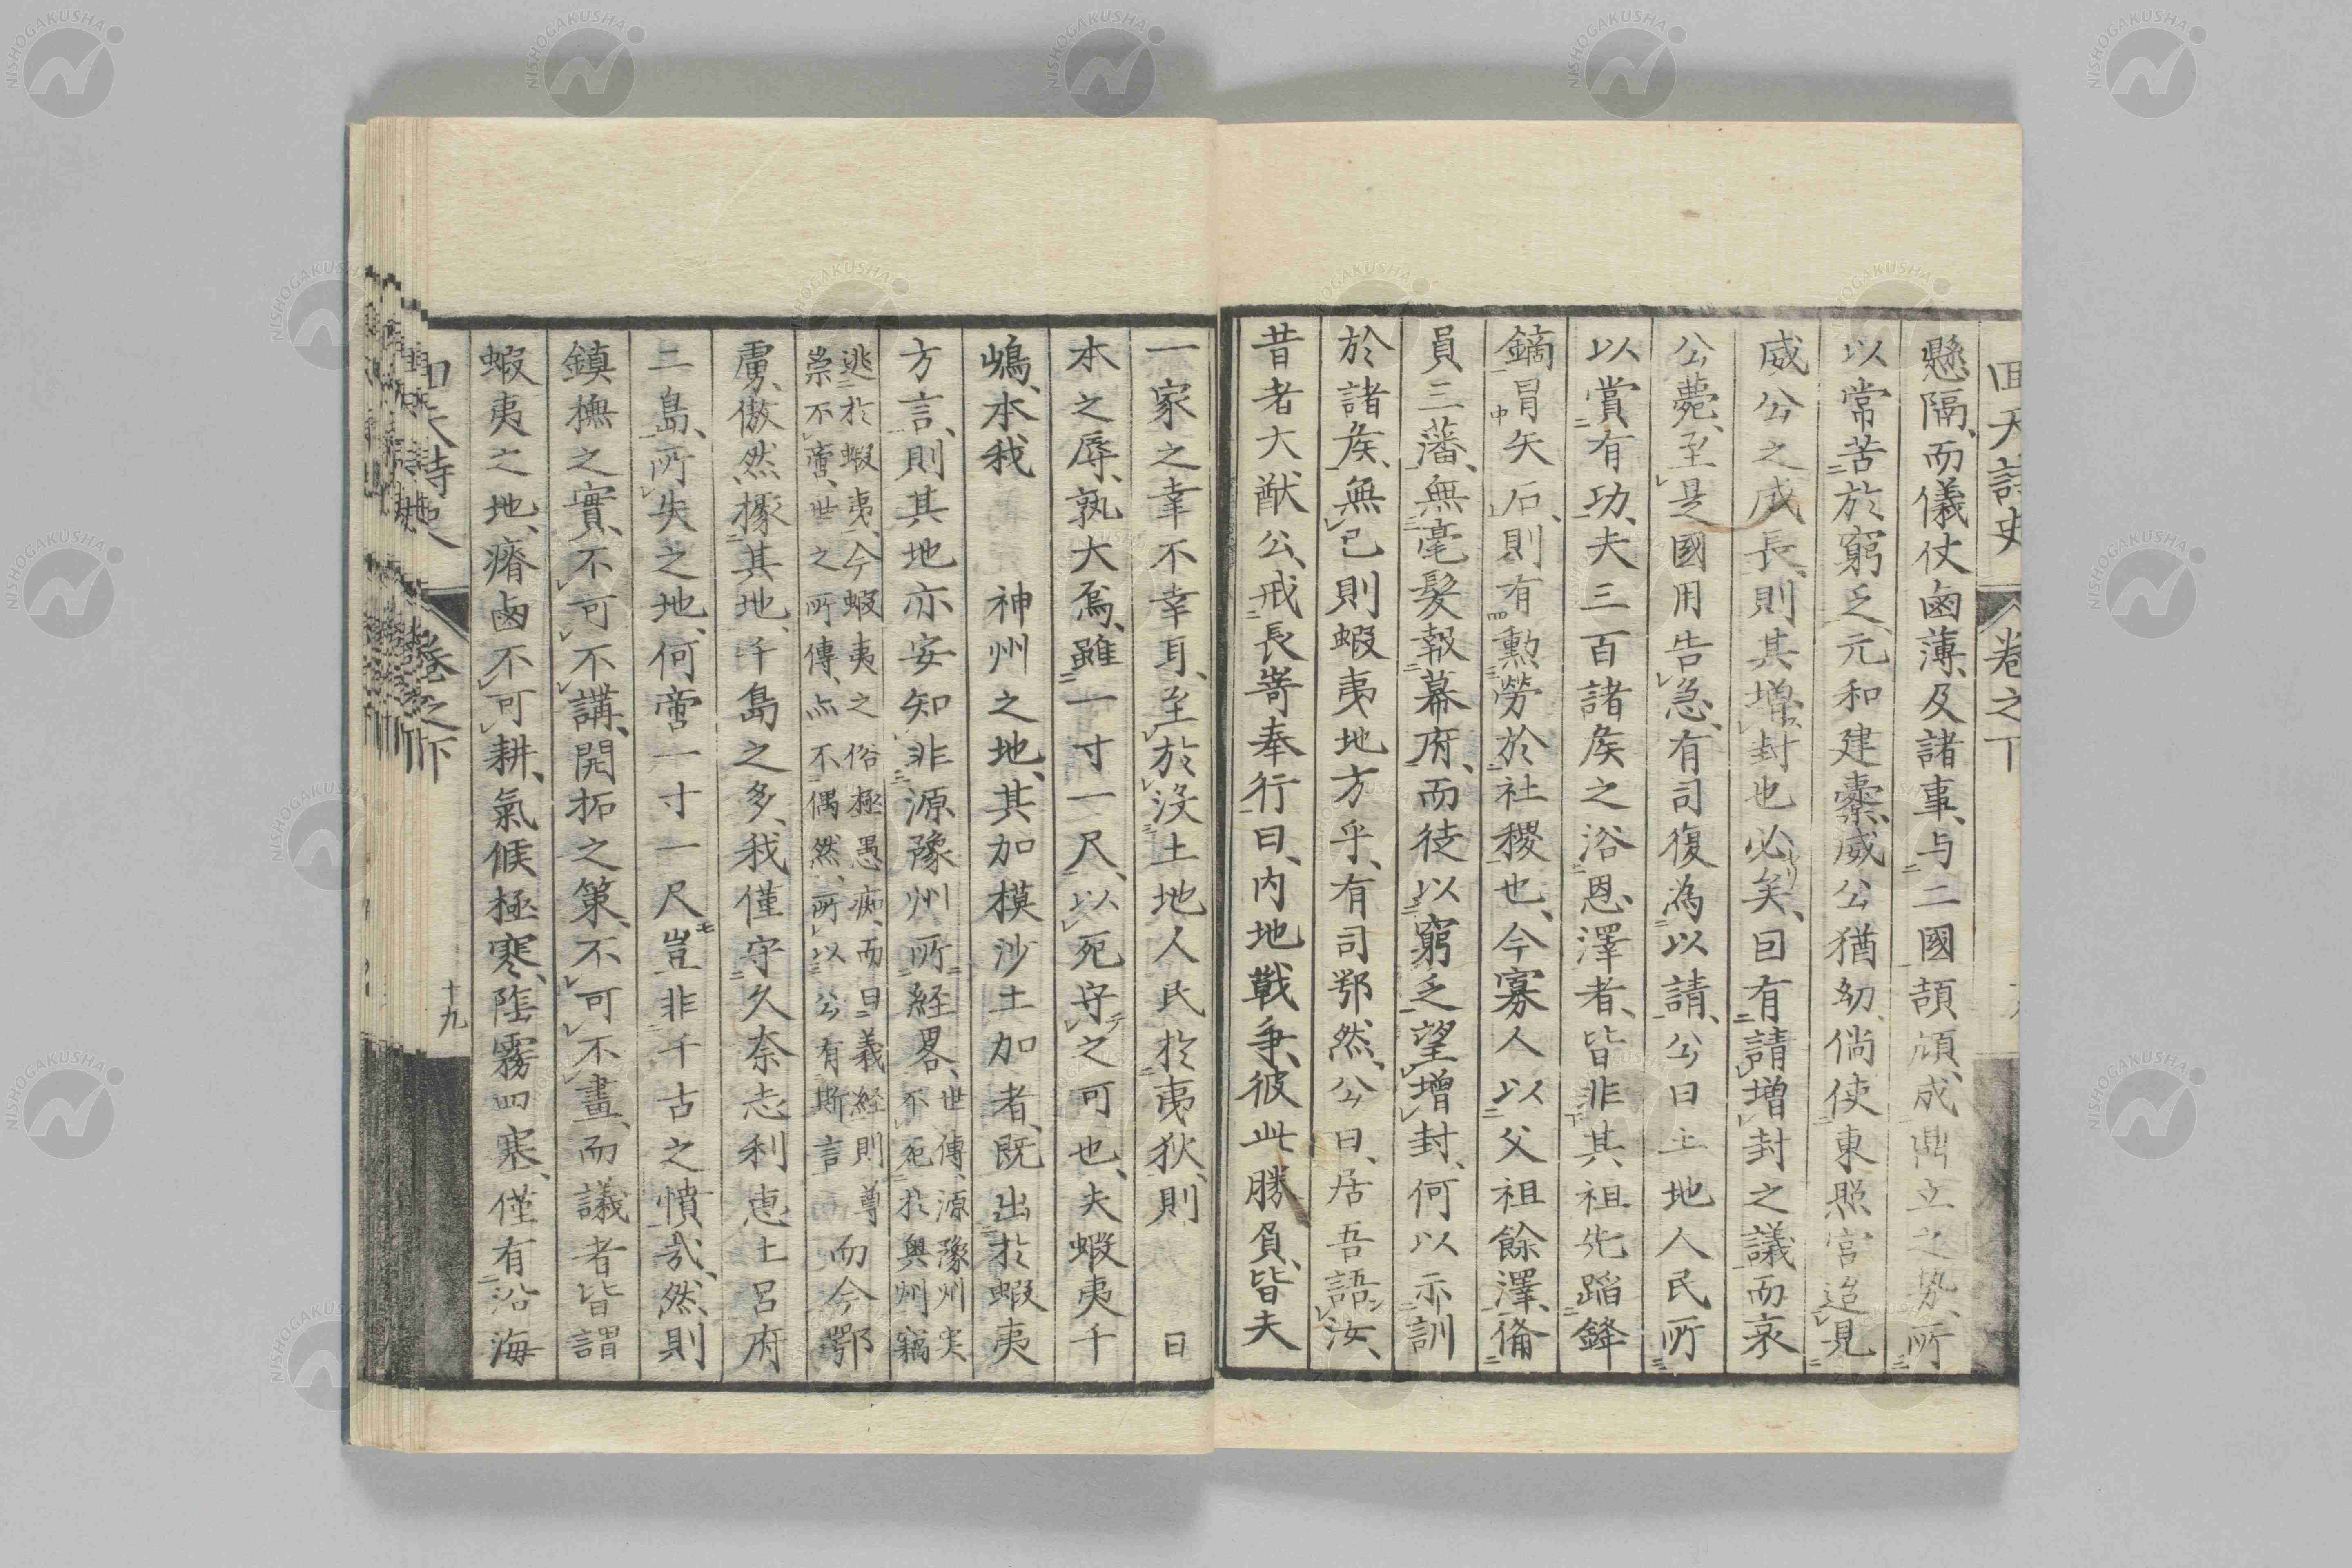 回天詩史 卷之下
懸隔、而儀仗鹵薄、及諸事、与二國頡頏、成鼎立之勢、所
以常苦於窮乏、元和建櫜、威公猶幼、倘使東照宮迨見
威公之成長、則其增封也必矣、回有請增封之議、而哀
公薨、至是國用告急、有司復為以請、公曰土地人民所
以賞有功、夫三百諸矦之浴恩澤者、皆非其祖先蹈鋒
鏑冒矢石、則有勲勞於社稷也、今寡人以父祖餘澤、備
員三藩、無毫髮報幕府、而徒以窮乏望增封、何以示訓
於諸矦、無已則蝦夷地方乎、有司鄂然、公曰、居吾語汝、
昔者大猷公、戒長嵜奉行曰、内地戰爭、彼此勝負、皆夫
一家之幸不幸耳、至於沒土地人民於夷狄、則 日
本之辱、孰大焉、雖一寸一尺、以死守之可也、夫蝦夷千
嶋、本我 神州之地、其加模沙土加者、既出於蝦夷
方言、則其地亦安知非源豫州所経畧、世傳、源豫州実
不死於奥州竊
逃於蝦夷、今蝦夷之俗極愚痴、而曰義経則尊
崇不啻、世之所傳、亦不偶然、所以公有斯言 而今鄂
虜、傲然據其地、千島之多、我僅守久奈志利恵土呂府
二島、所失之地、何啻一寸一尺豈非千古之憤哉、然、則
鎮撫之實、不可不講、開拓之策、不可不畫、而議者皆謂
蝦夷之地、瘠鹵不可耕、氣候極寒、陰霧四塞、僅有沿海
回天詩史 卷之下 十九